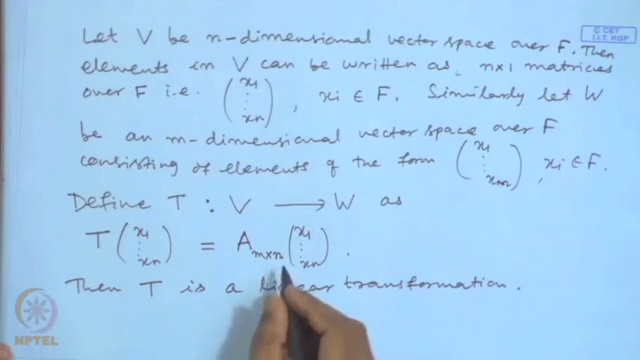 © CET
I.I.T. KGP
Let V be n-dimensional vector space over F. Then
elements in V can be written as, n×1 matrices
over F i.e. (x1 ⋮ xn), xi ∈ F. Similarly let W
be an m-dimensional vector space over F
consisting of elements of the form (x1 ⋮ xm), xi ∈ F.
Define T : V → W as
T (x1 ⋮ xn) = A m×n (x1 ⋮ xn).
Then T is a linear transformation.
NPTEL